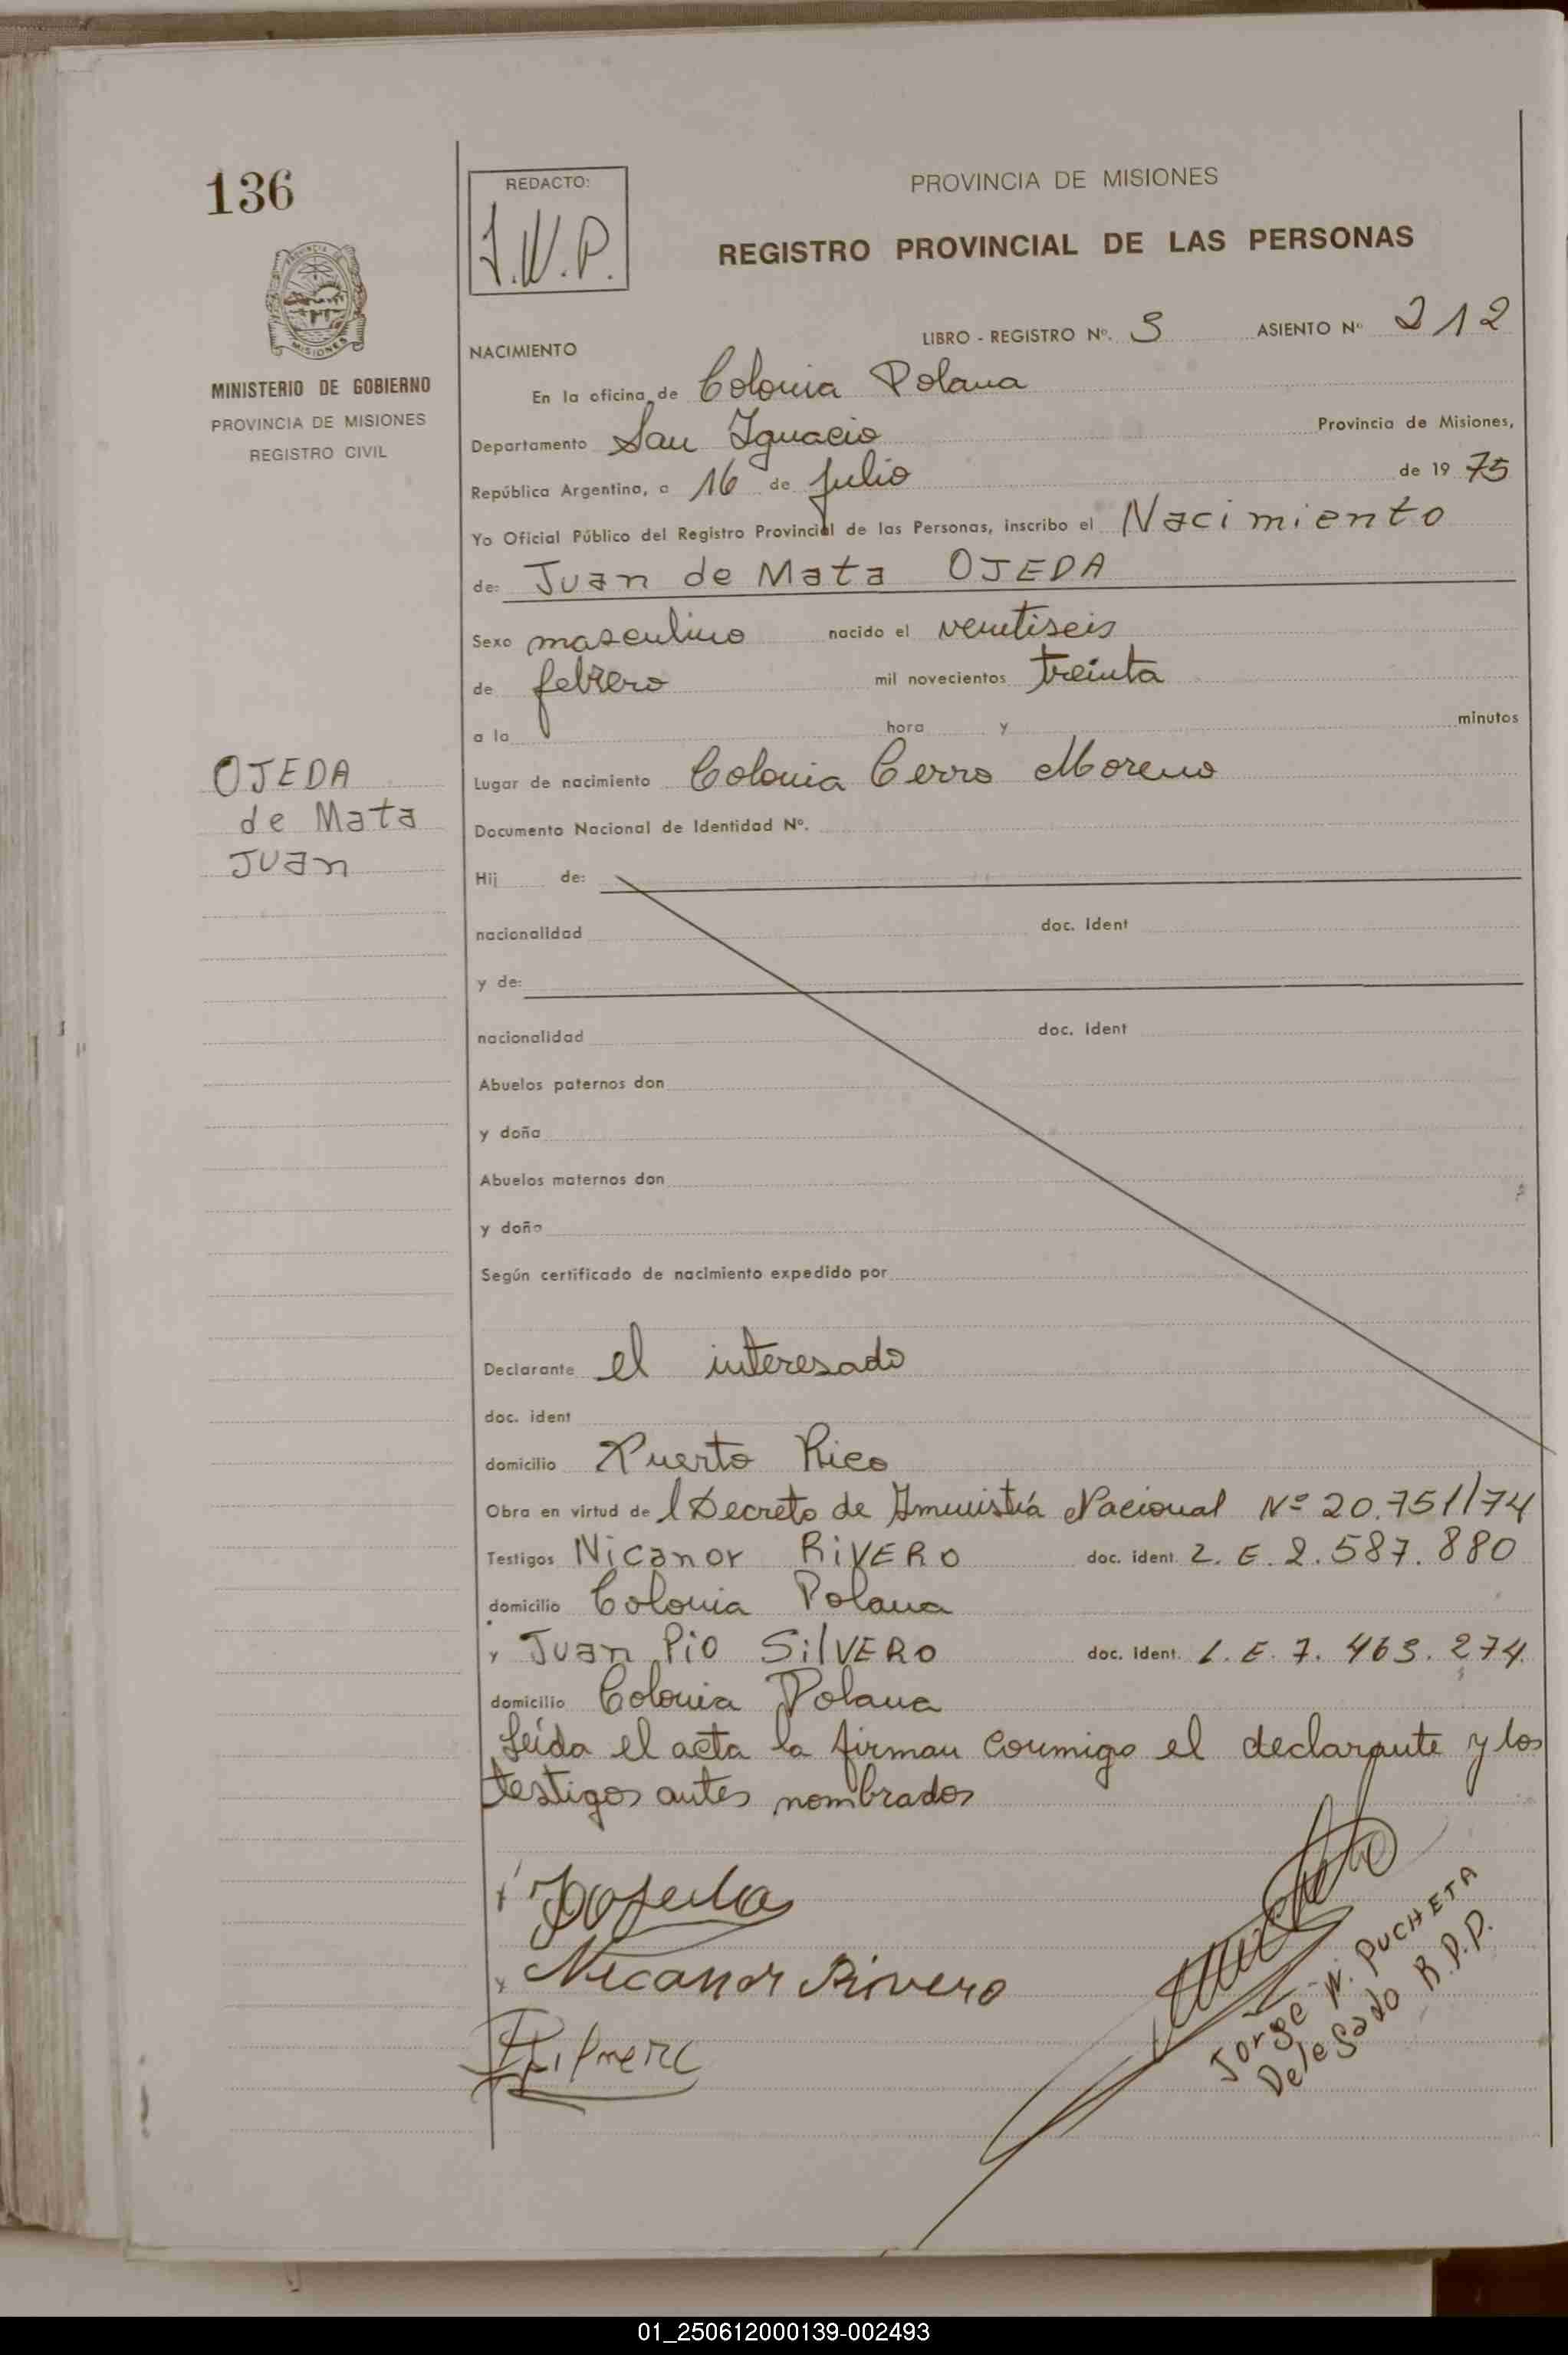 136
REDACTO:
J.W.P.
PROVINCIA DE MISIONES
REGISTRO PROVINCIAL DE LAS PERSONAS
PROVINCIA
MISIONES
MINISTERIO DE GOBIERNO
PROVINCIA DE MISIONES
REGISTRO CIVIL
LIBRO - REGISTRO Nº. 3 ASIENTO Nº 212
NACIMIENTO
En la oficina de Colonia Polana
Departamento San Ignacio Provincia de Misiones,
República Argentina, a 16 de julio de 19 75
Yo Oficial Público del Registro Provincial de las Personas, inscribo el Nacimiento
de: Juan de Mata OJEDA
Sexo masculino nacido el veintiseis
de febrero mil novecientos treinta
a la hora y minutos
OJEDA
de Mata
Juan
Lugar de nacimiento Colonia Cerro Moreno
Documento Nacional de Identidad Nº.
Hij de:
nacionalidad doc. ident
y de:
nacionalidad doc. ident
Abuelos paternos don
y doña
Abuelos maternos don
y doña
Según certificado de nacimiento expedido por
Declarante el interesado
doc. ident
domicilio Puerto Rico
Obra en virtud de l Decreto de Amnistía Nacional Nº 20.751/74
Testigos Nicanor RiVERO doc. ident. L. E. 2.587.880
domicilio Colonia Polana
y Juan Pio SilVERO doc. ident. L. E. 7.463.274
domicilio Colonia Polana
Leída el acta la firman conmigo el declarante y los
testigos antes nombrados
Nicanor Rivero
Jorge W. PUCHETA
Delegado R.P.P.
01_250612000139-002493